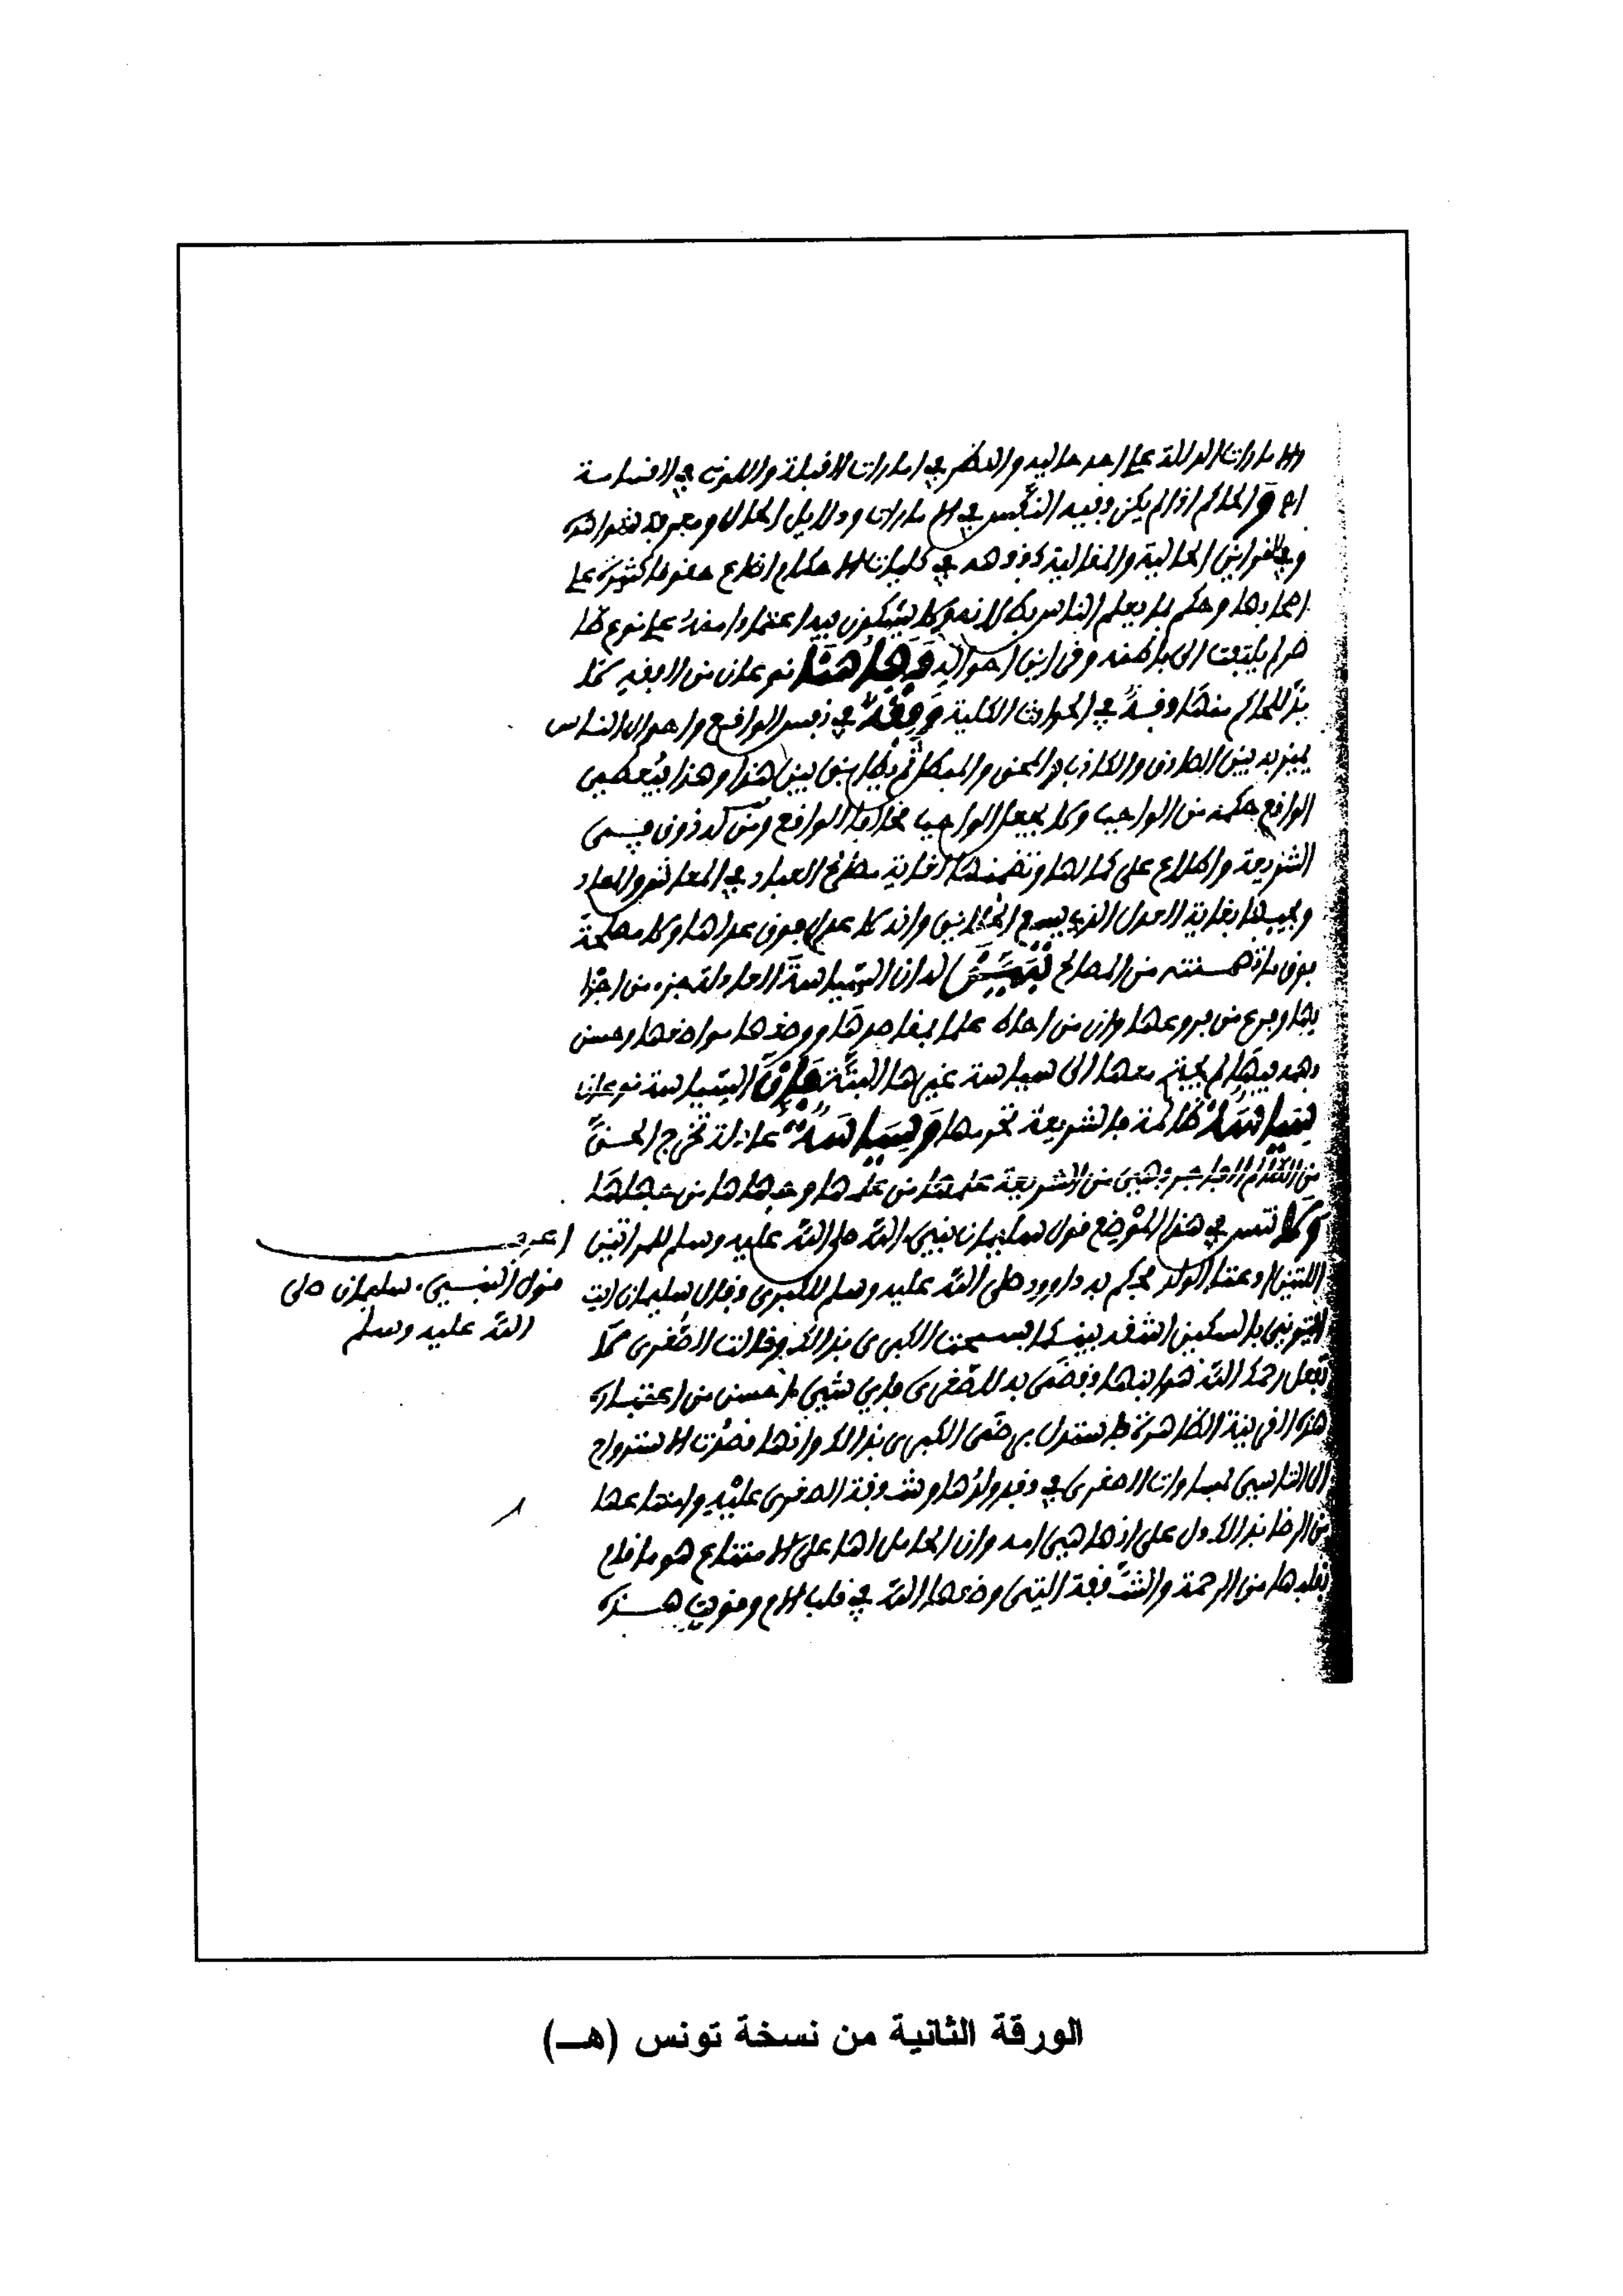 الامارات الدالة على احد حاليه والنظر في امارات القبلة واللوث في القسامة
والحاكم اذا لم يكن فقيه النفس في الامارات ودلايل الحال ومعرفة شواهده
وفي القراين الحالية والمقالية كفقهه في كليات الاحكام اضاع حقوقا كثيرة على
اصحابها وحكم بما يعلم الناس بطلانه ولا يشكون فيه اعتمادا منه على نوع ظا
هر لم يلتفت الى باطنه وقراين احواله فهاهنا نوعان من الفقه لا
بد للحاكم منهما فقه في الحوادث الكلية وفقه في نفس الواقع واحوال الناس
يميز به بين الصادق والكاذب والمحق والمبطل ثم يطابق بين هذا وهذا فيعطي
الواقع حكمه من الواجب ولا يجعل الواجب مخالفا للواقع ومن له ذوق في
الشريعة واطلاع على كمالها وتضمنها لغاية مصالح العباد في المعاش والمعاد
ومجيئها بغاية العدل الذي يسع الخلايق وانه لا عدل فوق عدلها ولا مصلحة
فوق ما تضمنته من المصالح تبين له ان السياسة العادلة جزء من اجزا
يها وفرع من فروعها وان من احاط علما بمقاصدها ووضعها مواضعها وحسن
فهمه فيها لم يحتج معها الى سياسة غيرها البتة فان السياسة نوعان
سياسة ظالمة فالشريعة تحرمها وسياسة عادلة تخرج الحق
من الظالم الفاجر فهي من الشريعة علمها من علمها وجهلها من جهلها
ولا تنس في هذا الموضع قول سليمان نبي الله صلى الله عليه وسلم للمراتين
اللتين ادعتا الولد فحكم به داوود صلى الله عليه وسلم للكبرى فقال سليمان ايت
ايتوني بالسكين اشقه بينكما فسمحت الكبرى بذالك وقالت الصغرى لا
تفعل رحمك الله هو ابنها فقضى به للصغرى فاي شيي احسن من اعتبار
هذه القرينة الظاهرة فاستدل برضى الكبرى بذالك وانها قصدت الاسترواح
الى التاسي بمساوات الصغرى في فقد ولدها وشفقة الصغرى عليه وامتناعها
من الرضا بذالك دل على انها هي امه وان الحامل لها على الامتناع هو ما قام
بقلبها من الرحمة والشفقة التي وضعها الله في قلب الام وقويت هذه
اعرف
قول النبيي سليمان صلى
الله عليه وسلم
الورقة الثانية من نسخة تونس (هـ)